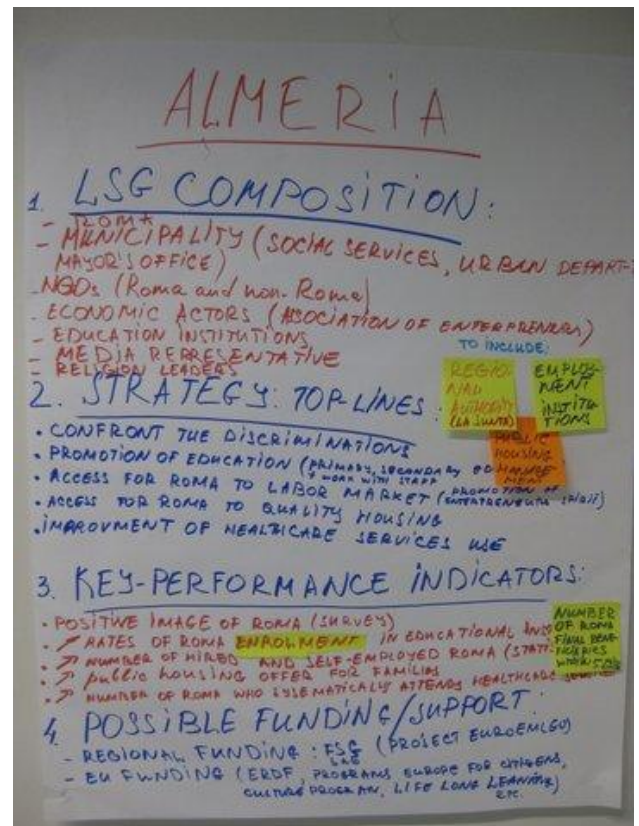 ALMERIA
1. LSG COMPOSITION:
- ROMA
- MUNICIPALITY (SOCIAL SERVICES, URBAN DEPART-
MAYOR'S OFFICE)
- NGOs (Roma and non-Roma)
- ECONOMIC ACTORS (ASSOCIATION OF ENTERPRENEURS)
- EDUCATION INSTITUTIONS
- MEDIA REPRESENTATIVE
- RELIGION LEADERS
TO INCLUDE:
REGIO-
NAL
AUTHORITY
(LA JUNTA)
EMPLOY-
MENT
INSTITU-
TIONS
PUBLIC
HOUSING
MANAGE-
MENT
2. STRATEGY: TOP-LINES:
• CONFRONT THE DISCRIMINATIONS
• PROMOTION OF EDUCATION (PRIMARY, SECONDARY
+ WORK WITH STAFF
• ACCESS FOR ROMA TO LABOR MARKET (PROMOTION OF
ENTERPRENEURS
• ACCESS FOR ROMA TO QUALITY HOUSING
• IMPROVMENT OF HEALTHCARE SERVICES USE
3. KEY-PERFORMANCE INDICATORS:
• POSITIVE IMAGE OF ROMA (SURVEY)
• ↗ RATES OF ROMA ENROLMENT IN EDUCATIONAL
• ↗ NUMBER OF HIRED AND SELF-EMPLOYED ROMA
• ↗ public HOUSING OFFER FOR FAMILIES
• ↗ NUMBER OF ROMA WHO SYSTEMATICALLY ATTENDS HEALTHCARE
NUMBER
OF ROMA
FINAL BENE-
FICIARIES
4. POSSIBLE FUNDING/SUPPORT:
- REGIONAL FUNDING: FSG (PROJECT
- EU FUNDING (ERDF, PROGRAMS EUROPE FOR CITIZENS,
CULTURE PROGRAM, LIFE LONG LEARNING)
ETC.